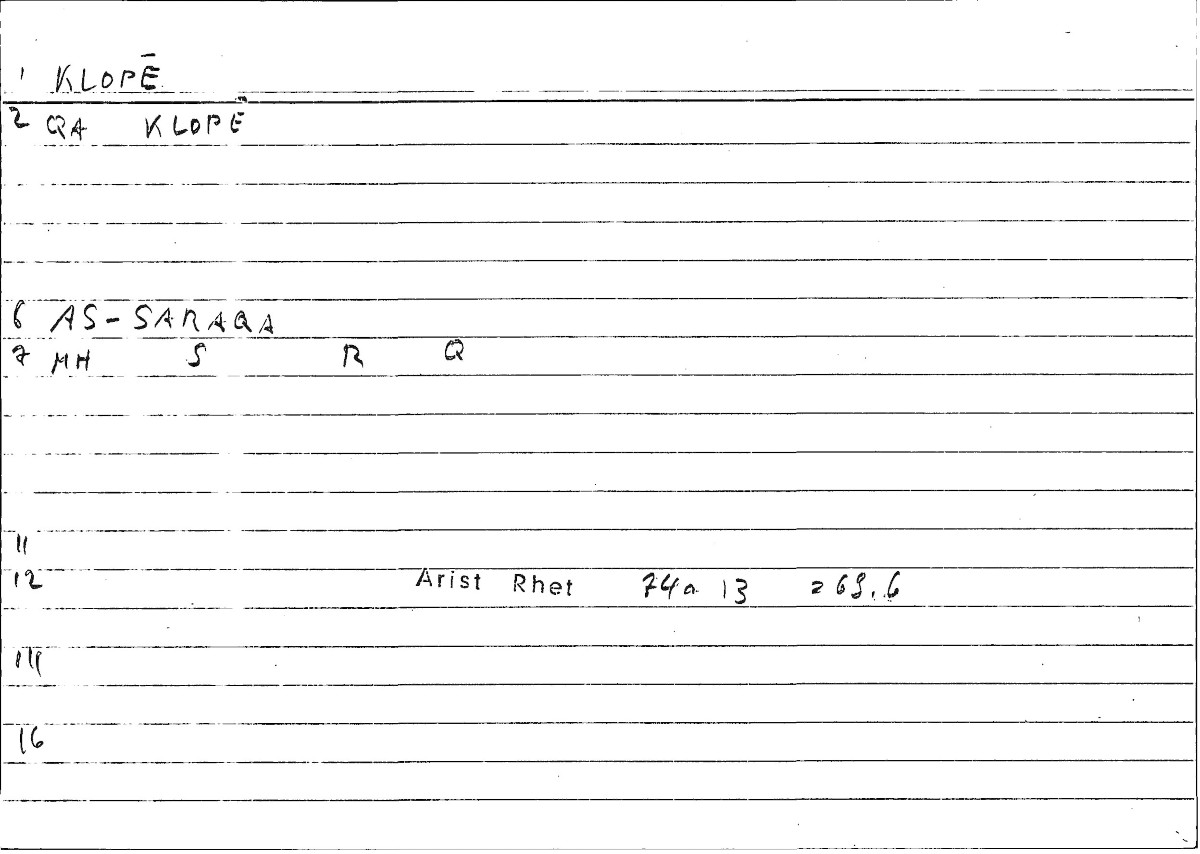 1 KLOPĒ
2 QA KLOPĒ
6 AS-SARAQA
7 MH S R Q
11
12 Arist Rhet 74a 13
14
16